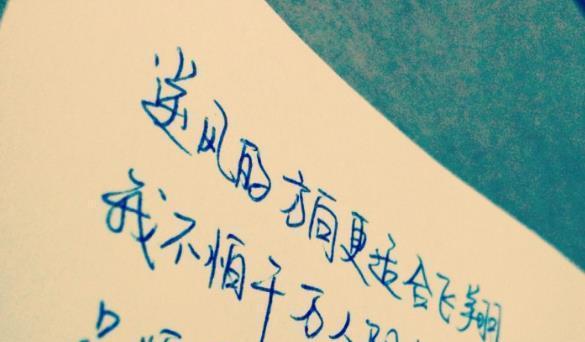 逆风的方向更适合飞翔
我不怕千万人阻
只